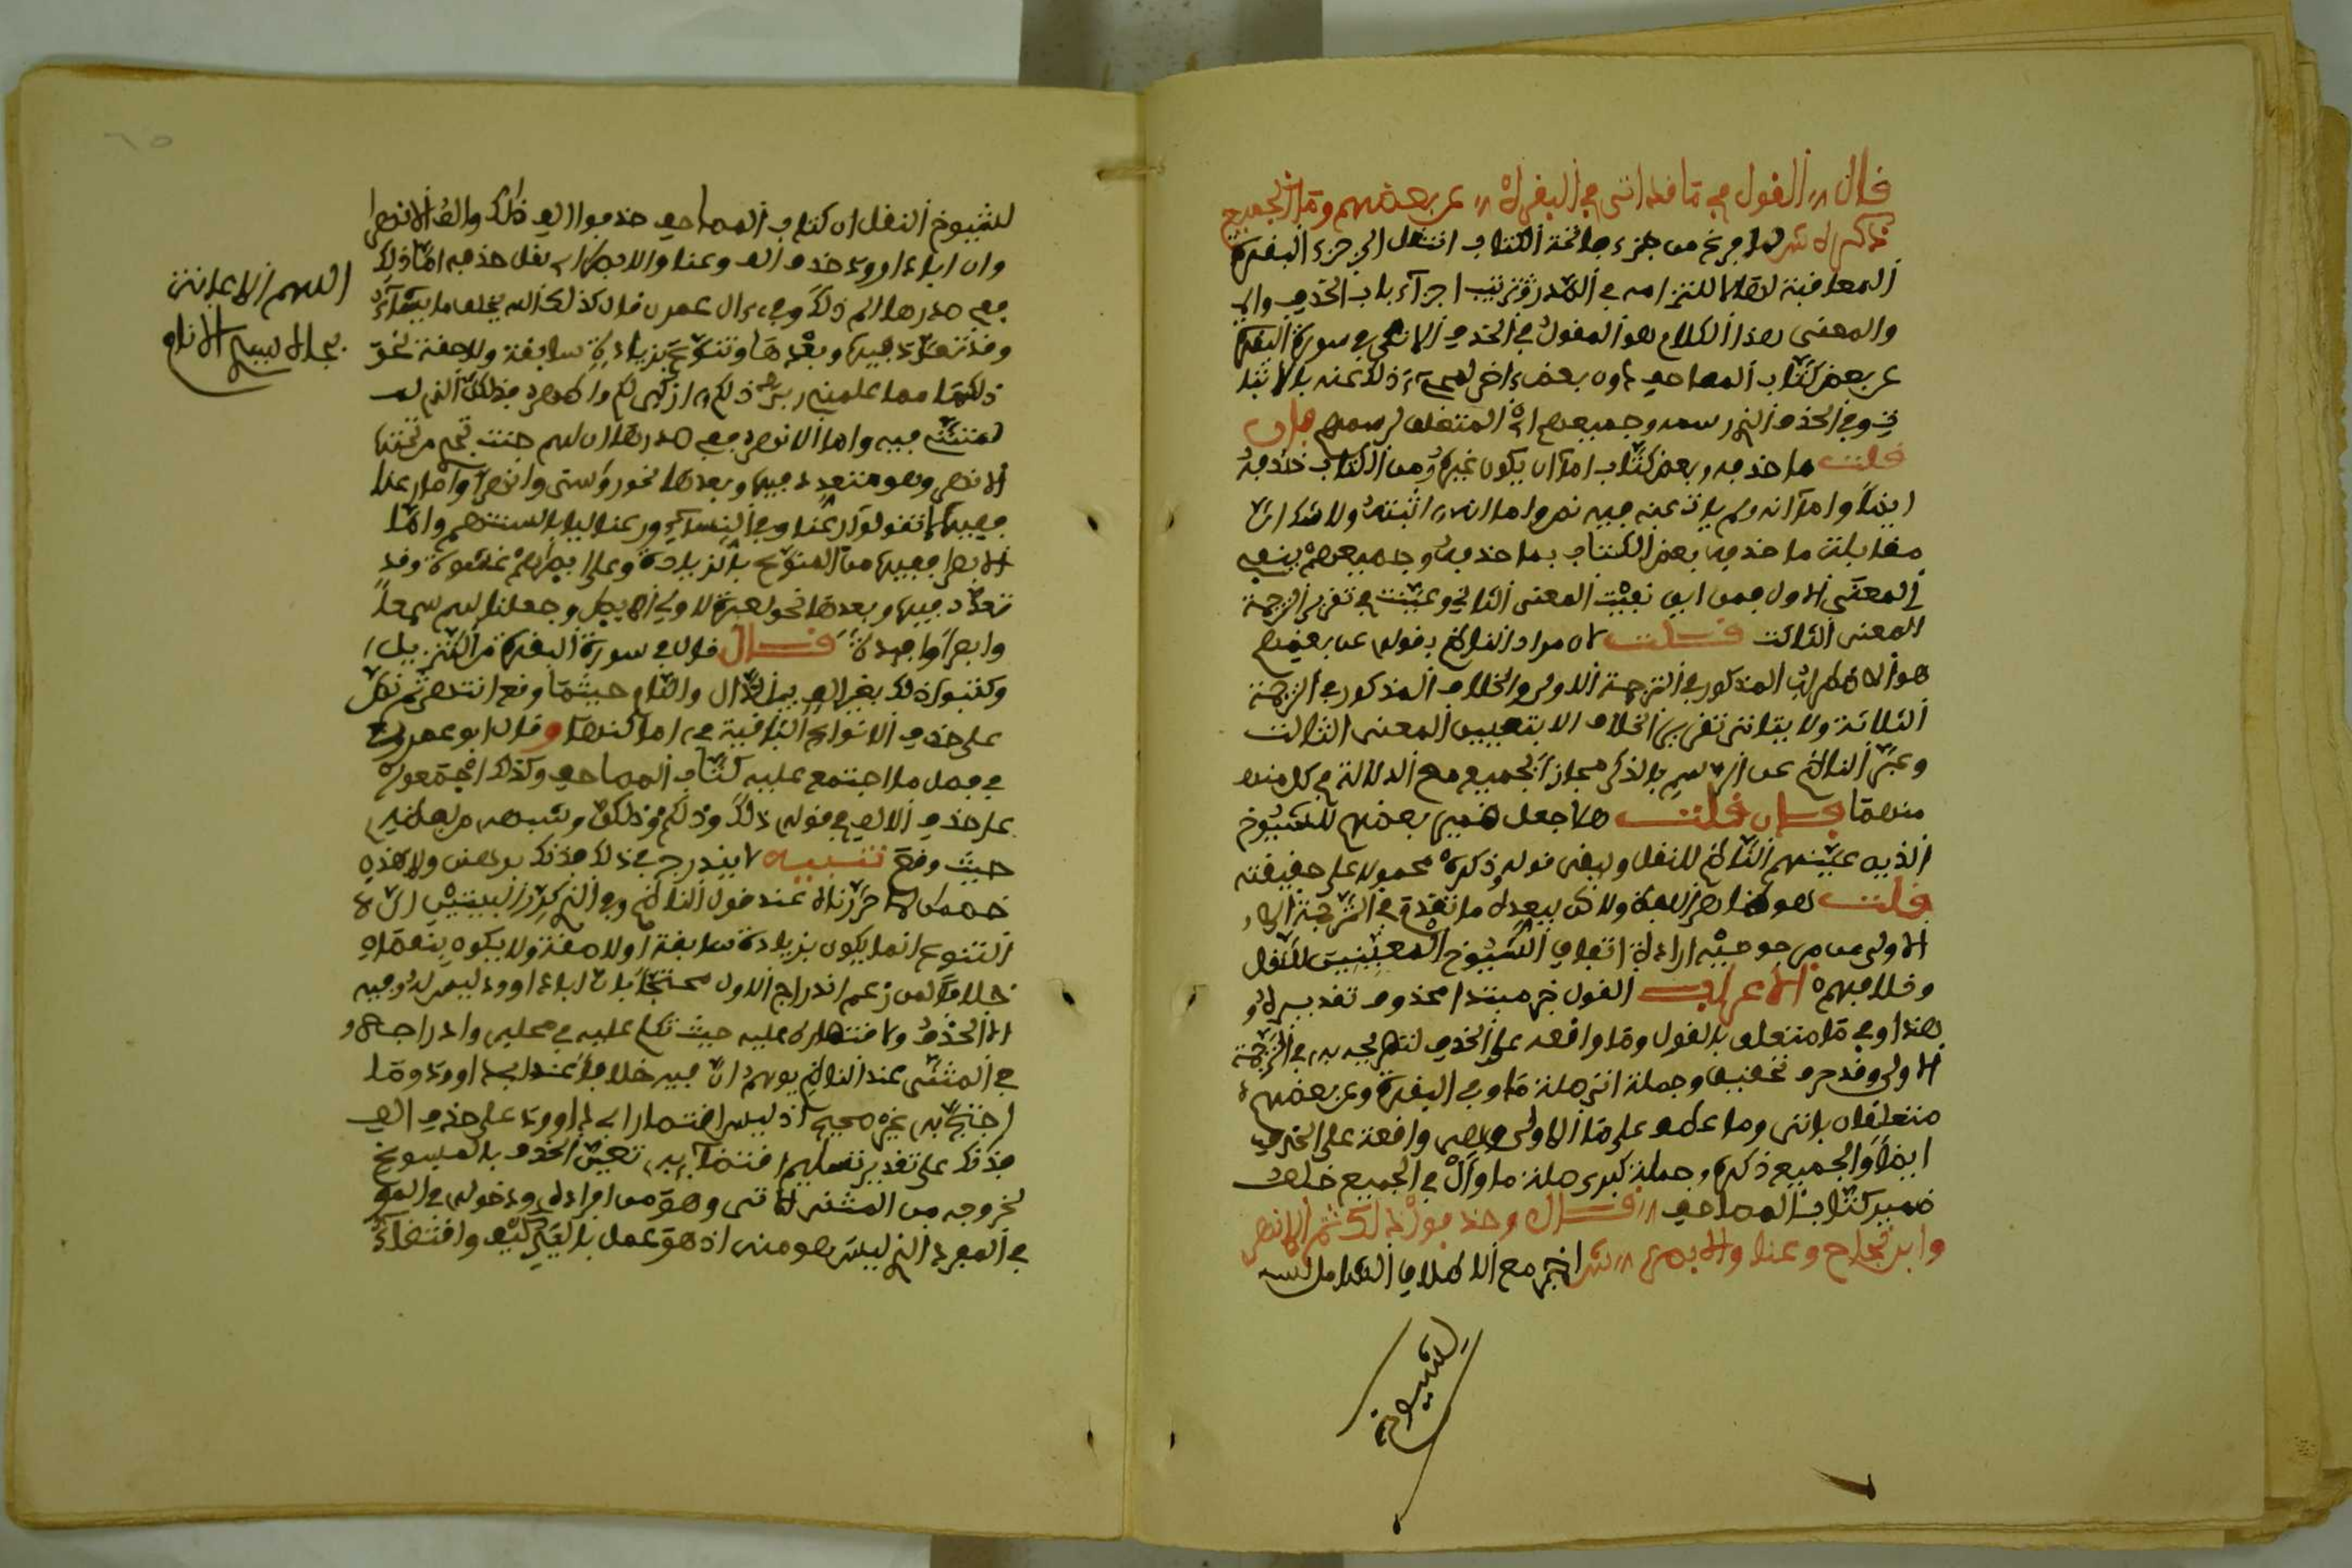 قال // القول في ما قد اتى في البقره // عن بعضهم وما الجميع
ذكره ش لما فرغ من جزء فاتحة الكتاب انتقل الى جزء البقرة
المعاقبة لها التزامه في الصدر ترتيب اجزاء باب الحذف والى
والمعنى هذا الكلام هو المقول في الحذف الاتي في سورة البقرة
عن بعض كتاب المصاحف دون بعض اخر
في وفي الحذف الذي رسمه وجميعهم المتعلق لرسمهم فإن
قلت ما حذفه بعض كتاب اما ان يكون غيره من الكتاب حذفه
ايضا واما انه لم يات عنه فيه نص واما انه اثبته ولا شك ان
مقابلة ما حذفه بعض الكتاب بما حذفه جميعهم ينفي
المعنى الاول فمن اين نفيت المعنى الثاني وعينت في تقرير الترجمة
المعنى الثالث قلت لان مراد الناظم بقوله عن بعضهم
هو الاضطراب المذكور في الترجمة الاولى والخلاف المذكور في الترجمة
الثلاثة ولا يتاتى تقرير الخلاف الا بتعيين المعنى الثالث
وعبر الناظم عن الرسم بالذكر مجازا لجميع مع الدلالة في كل منه
منهما فإن قلت هلا جعل ضمير بعضهم للشيوخ
الذين عينهم الناظم للنقل ويبقى قوله ذكره محمولا على حقيقته
قلت هو هنا ولاكن يبعده ما تقدم في الترجمة
الاولى من مرجوحية ارادة اتفاق الشيوخ المعينين للنقل
وخلافهم الاعراب القول خبر مبتدا محذوف تقديره
هذا وفي ما متعلق بالقول وما واقعة على الحذف لتصريحه به في الترجمة
الاولى وقد حرف تحقيق وجملة اتى صلة ما وفي البقرة وعن بعضهم
متعلقان باتى وما عطف على ما الاولى وهي واقعة على الحذف
ايضا والجميع ذكره جملة كبرى صلة ما وال في الجميع خلف
ضمير كتاب المصاحف // قال وحذفوا ذلك ثم الانهر
وابن نجاح وعنا والابصر // ش اخبر مع الاطلاق الشامل
للشيوخ
للشيوخ النقل ان كتاب المصاحف حذفوا الف ذلك والف الانهر
وان ابا داوود حذف الف وعنا والابصار اي نقل حذفه اما ذلك
ففي صدرها الم ذلك وفي ءال عمرن قال كذلك الله يخلق ما يشاء
وقد تعدد فيها وبعدها وتنوع بزيادة سابقة ولاحقة نحو
ذلكما مما علمني ربي ذلكم ازكى لكم واطهر فذلكن الذي لم
لمتنني فيه واما الانهر ففي صدرها ان لهم جنت تجري من تحتها
الانهر وهو متعدد فيها وبعدها نحو روسي وانهرا واما رعنا
ففيها لا تقولوا رعنا وفي النساء ورعنا ليا بالسنتهم واما
الابصر ففيها من المنوع بالزيادة وعلى ابصرهم غشوة وقد
تعدد فيها وبعدها نحو لعبرة لاولي الابصر وجعلنا لهم سمعا
وابصرا وافئدة قال قال في سورة البقرة من التنزيل
وكتبوا ذلك بغير الف بين الذال واللام حيثما وقع انتهى ثم نقل
على حذف الانوار الباقية في اماكنها وقال ابو عمرو
في فصل ما اجتمع عليه كتاب المصاحف وكذلك اجتمعوا
على حذف الالف في قوله ذلك وذلكم وذلكن وشبهه من لفظه
حيث وقع تنبيه لا يندرج في ذلك فذنك برهنن ولا هذه
خصمن لما حررناه عند قول الناظم وفي الذي كررن البينتين ان
التنوع انما يكون بزيادة سابقة او لاحقة ولا يكون بنقصه
خلافا لمن زعم اندراج الاول محتجا بان ابا داوود ليس له فيه
الا الحذف ولاقتصاره عليه حيث تكلم عليه في محله وادراجه
في المثنى عند الناظم يوهم ان فيه خلافا عند ابي داوود وما
احتج به غير صحيح اذ ليس اقتصار ابي داوود على حذف الف
فذنك على تقدير تسليم اقتضائه تعين الحذف بالمسوغ
لخروجه من المثنى الاتي وهو من افراده ودخوله في
في المفرد الذي ليس هو منه اذ هو عمل بالعكس واقتضاء
اللهم
بجاه النبي الانام